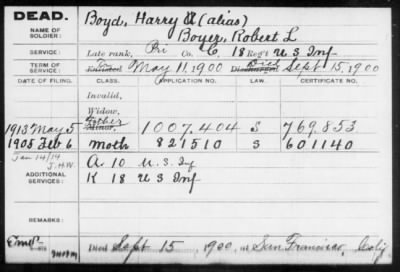 DEAD.
Boyd, Harry A (alias)
NAME OF SOLDIER:
Boyer, Robert L
SERVICE:
Late rank, Pri Co. C, 18 Reg't U S Inf
TERM OF SERVICE:
Enlisted May 11, 1900 Discharged Died Sept 15, 1900
DATE OF FILING. CLASS. APPLICATION NO. LAW. CERTIFICATE NO.
Invalid,
Widow,
1913 May 5 Minor, Father 1007.404 S 769.853
1905 Feb 6 moth 821510 S 601140
Jan 14/14
J.H.W.
ADDITIONAL SERVICES:
A 10 U.S. Inf
K 18 U S Inf
REMARKS:
Died Sept 15, 1900, at San Francisco, Calif